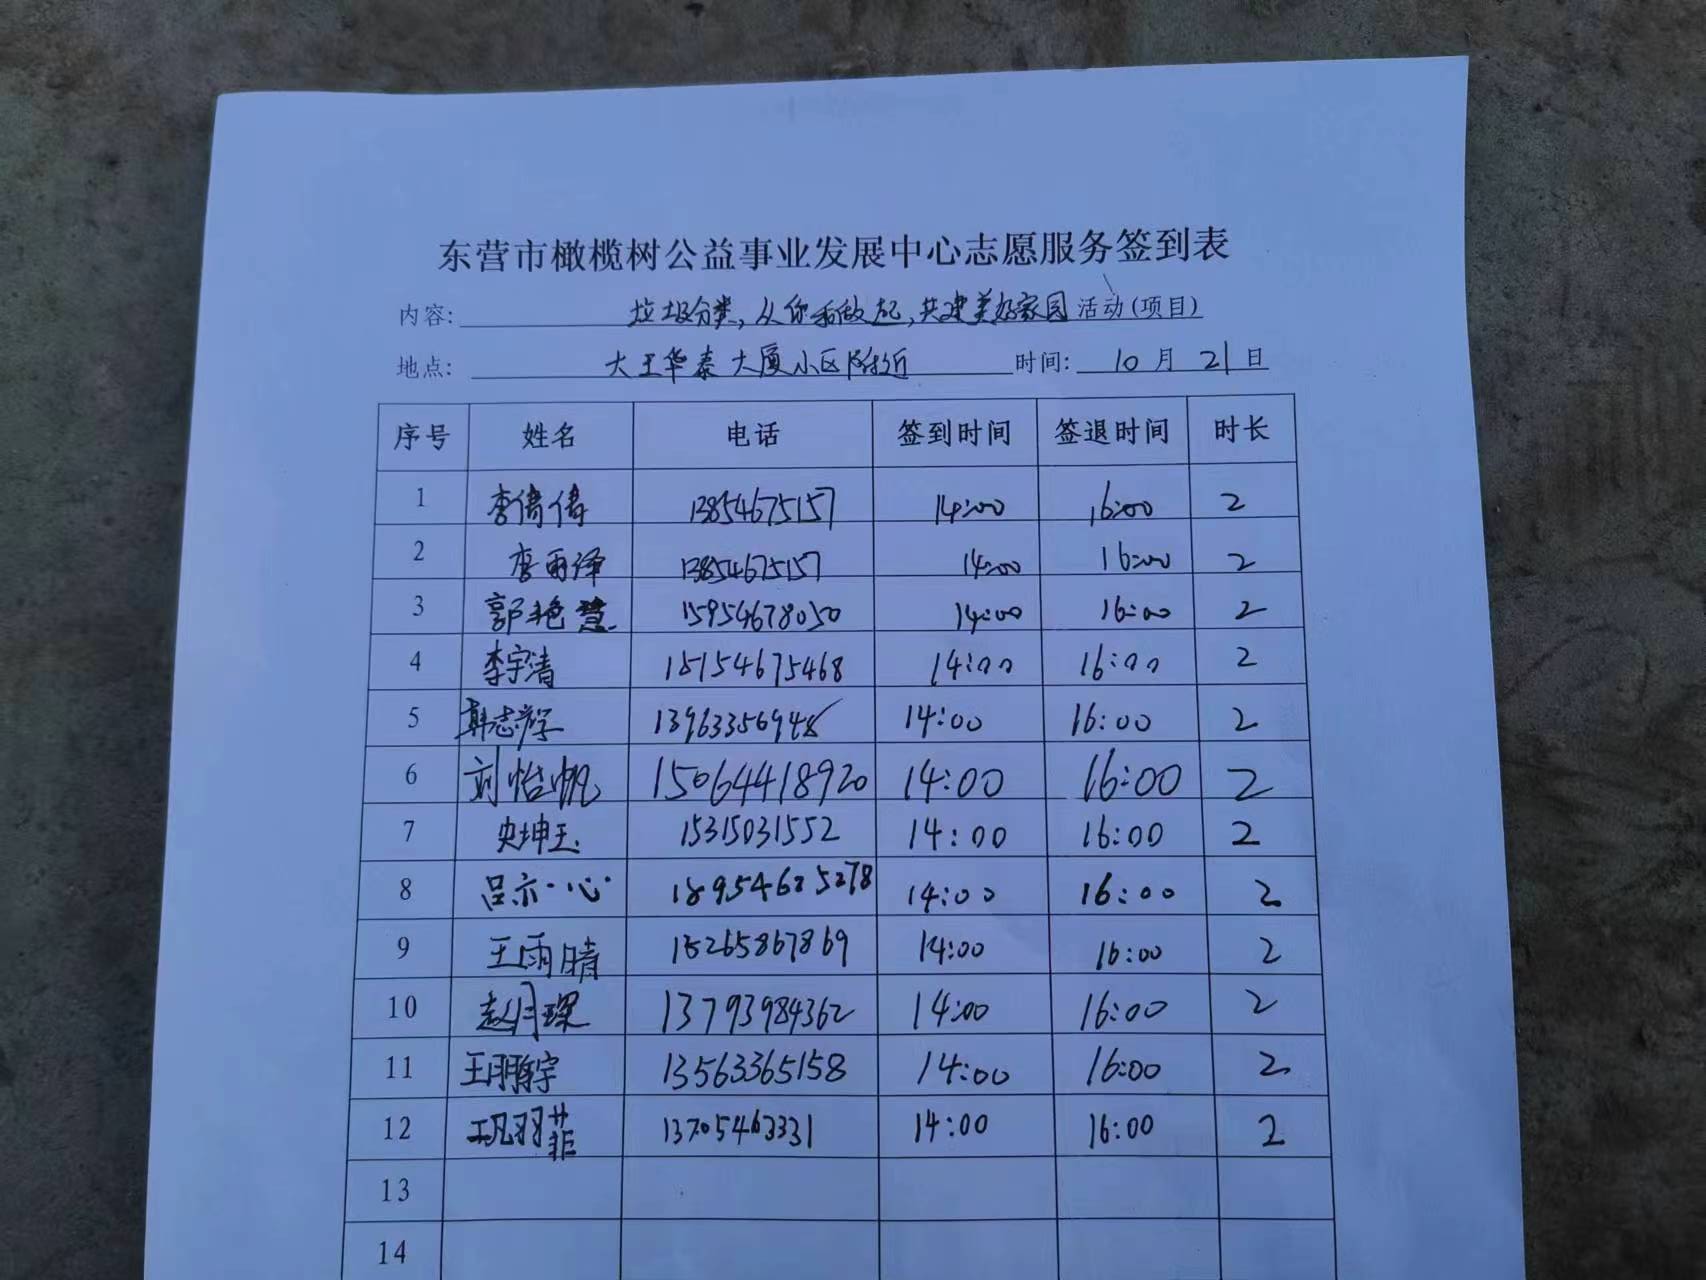 东营市橄榄树公益事业发展中心志愿服务签到表
内容: 垃圾分类,从你我做起,共建美好家园 活动(项目)
地点: 大王华泰大厦小区附近 时间: 10 月 21 日
序号 姓名 电话 签到时间 签退时间 时长
1 李倩倩 13854675157 14:00 16:00 2
2 李雨泽 13854675157 14:00 16:00 2
3 郭艳慧 15954678050 14:00 16:00 2
4 李宇清 18154675468 14:00 16:00 2
5 韩志学 13963356948 14:00 16:00 2
6 刘怡帆 15064418920 14:00 16:00 2
7 史坤玉 15315031552 14:00 16:00 2
8 吕亦心 18954685278 14:00 16:00 2
9 王雨晴 15265867869 14:00 16:00 2
10 赵月琛 13793984362 14:00 16:00 2
11 王翰宇 13563365158 14:00 16:00 2
12 巩羽菲 13705463331 14:00 16:00 2
13
14